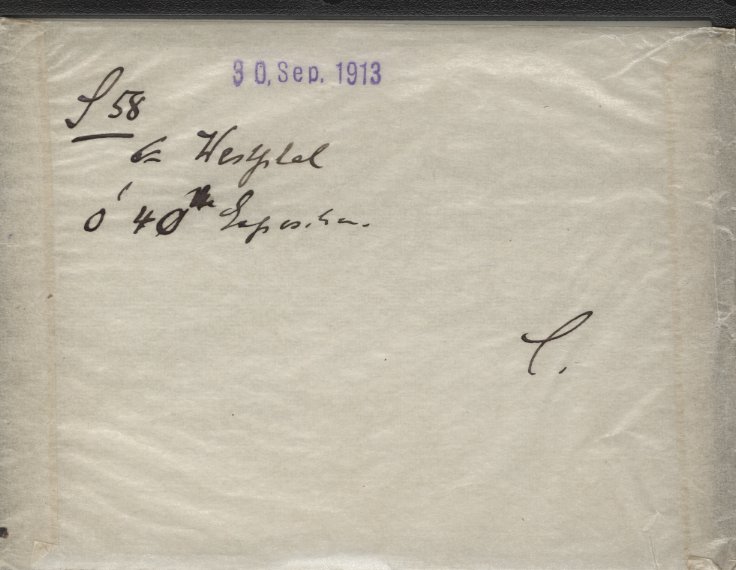 30. Sep. 1913
S 58
Westphal
0' 40 Exposition.
C.